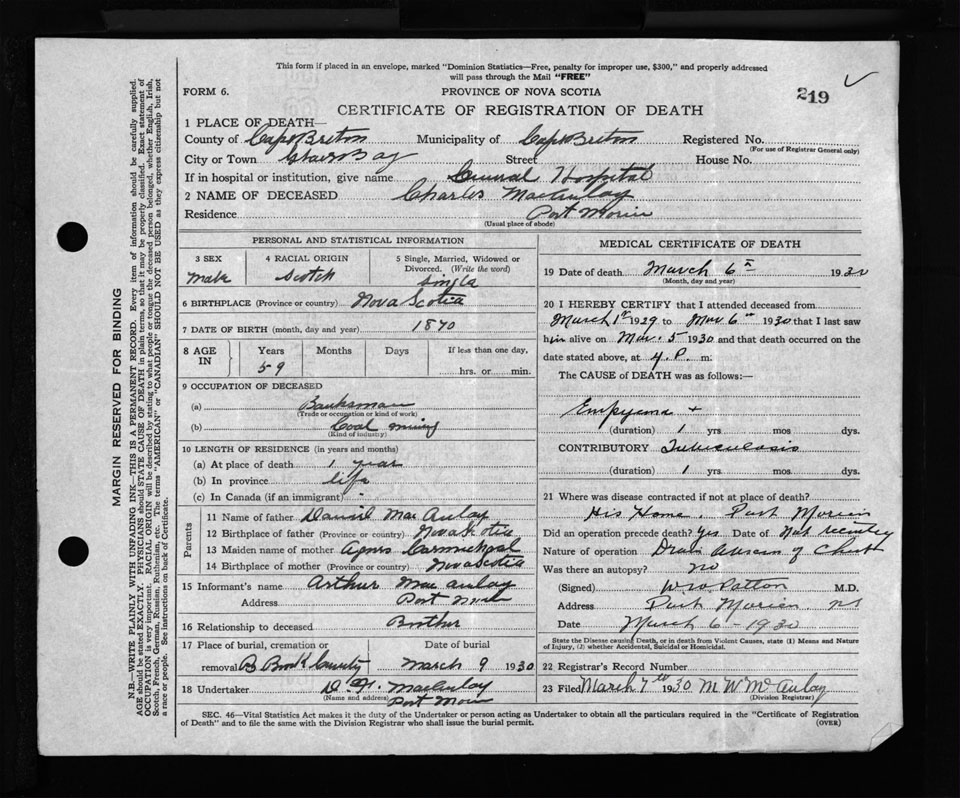 This form if placed in an envelope, marked "Dominion Statistics—Free, penalty for improper use, $300," and properly addressed
will pass through the Mail "FREE"
FORM 6.
PROVINCE OF NOVA SCOTIA
219
CERTIFICATE OF REGISTRATION OF DEATH
1 PLACE OF DEATH—
County of Cape Breton Municipality of Cape Breton Registered No.
(For use of Registrar General only)
City or Town Glace Bay Street House No.
If in hospital or institution, give name General Hospital
2 NAME OF DECEASED Charles MacAulay
Residence Port Morien
(Usual place of abode)
PERSONAL AND STATISTICAL INFORMATION
3 SEX 4 RACIAL ORIGIN 5 Single, Married, Widowed or
Divorced. (Write the word)
Male Scotch Single
6 BIRTHPLACE (Province or country) Nova Scotia
7 DATE OF BIRTH (month, day and year) 1870
8 AGE IN Years Months Days If less than one day,
59 hrs. or min.
9 OCCUPATION OF DECEASED
(a) Banksman
(Trade or occupation or kind of work)
(b) Coal mining
(Kind of industry)
10 LENGTH OF RESIDENCE (in years and months)
(a) At place of death 1 year
(b) In province life
(c) In Canada (if an immigrant)
Parents
11 Name of father Daniel MacAulay
12 Birthplace of father (Province or country) Nova Scotia
13 Maiden name of mother Agnes Carmichael
14 Birthplace of mother (Province or country) Nova Scotia
15 Informant's name Arthur MacAulay
Address Port Morien
16 Relationship to deceased Brother
17 Place of burial, cremation or Date of burial
removal March 9 1930
18 Undertaker MacAulay
(Name and address) Port Morien
MEDICAL CERTIFICATE OF DEATH
19 Date of death March 6th 1930
(Month, day and year)
20 I HEREBY CERTIFY that I attended deceased from
March 1st 1929 to Mar 6th 1930 that I last saw
him alive on Mar 5 1930 and that death occurred on the
date stated above, at 4.P. m:
The CAUSE of DEATH was as follows:—
Empyema +
(duration) 1 yrs mos. dys.
CONTRIBUTORY Tuberculosis
(duration) 1 yrs mos. dys.
21 Where was disease contracted if not at place of death?
His Home. Port Morien
Did an operation precede death? Yes. Date of Not recently
Nature of operation Drain Abscess of Chest
Was there an autopsy? No
(Signed) W W Patton M.D.
Address Port Morien. NS
Date March 6 - 1930
State the Disease causing Death, or in death from Violent Causes, state (1) Means and Nature
of Injury, (2) whether Accidental, Suicidal or Homicidal.
22 Registrar's Record Number
23 Filed March 7th 1930 M W McAulay
(Division Registrar)
SEC. 46—Vital Statistics Act makes it the duty of the Undertaker or person acting as Undertaker to obtain all the particulars required in the "Certificate of Registration
of Death" and to file the same with the Division Registrar who shall issue the burial permit.
(OVER)
MARGIN RESERVED FOR BINDING
N.B.—WRITE PLAINLY WITH UNFADING INK—THIS IS A PERMANENT RECORD. Every item of information should be carefully supplied.
AGE should be stated EXACTLY. PHYSICIANS should STATE CAUSE OF DEATH in plain terms, so that it may be properly classified. Exact statement of
OCCUPATION is very important. RACIAL ORIGIN will be described by stating to what people or tongue the deceased person belonged, whether English, Irish,
Scotch, French, German, Russian, Ruthenian, etc. The terms "AMERICAN" or "CANADIAN" SHOULD NOT BE USED as they express citizenship but not
a race or people. See instructions on back of Certificate.